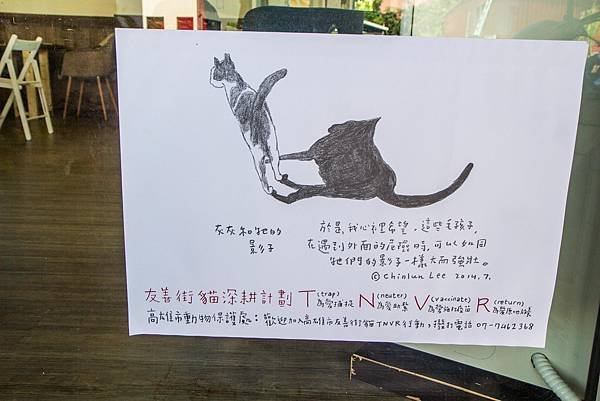 灰灰和牠的
影子
於是,我心裡希望,這些毛孩子,
在遇到外面的危險時,可以如同
牠們的影子一樣大而強壯。
© Chinlun Lee 2014.7.
友善街貓深耕計劃 T(trap)為愛捕捉 N(neuter)為愛節育 V(vaccinate)為愛施打疫苗 R(return)為愛原地回置
高雄市動物保護處:歡迎加入高雄市友善街貓TNVR行動,撥打電話 07-7462368